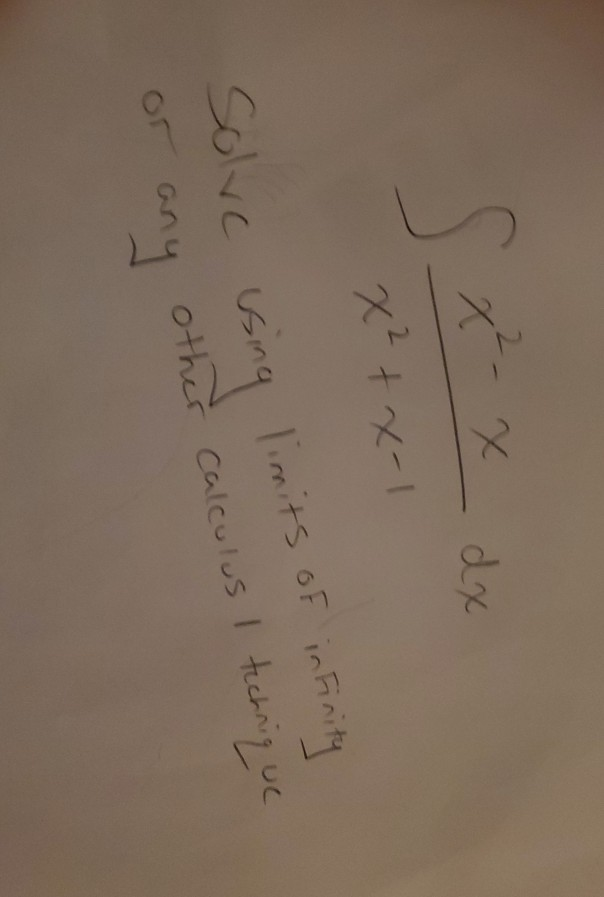 ∫ x² - x / x² + x - 1 dx
Solve using limits of infinity
or any other calculus 1 technique